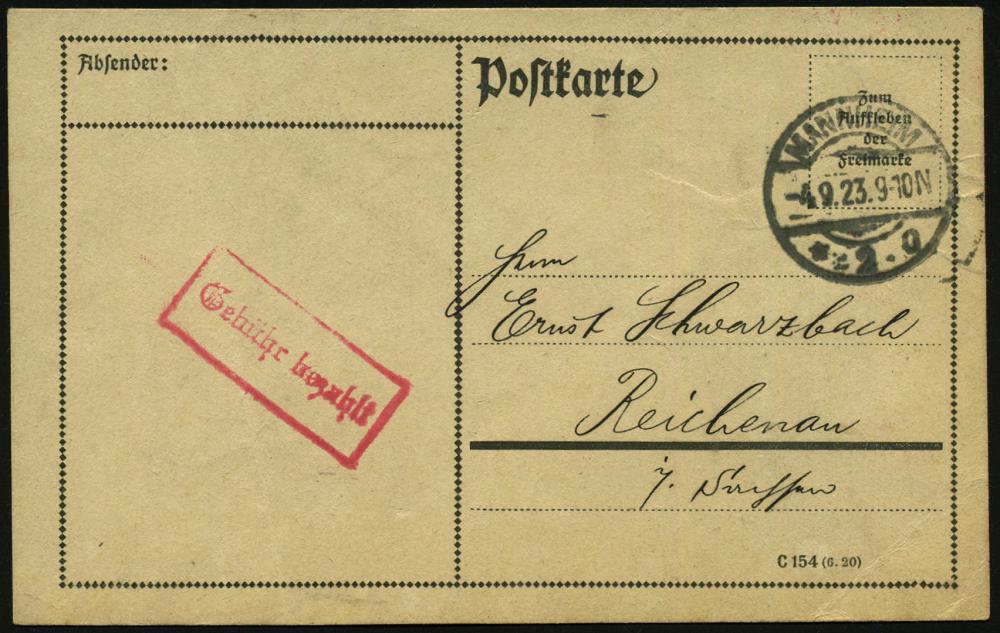 Absender:
Postkarte
Zum
Aufkleben
der
Freimarke
MANNHEIM
4.9.23.9-10N
* 2 *
Gebühr bezahlt
Herrn
Ernst Schwarzbach
Reichenau
i. Sachsen
C 154 (6. 20)